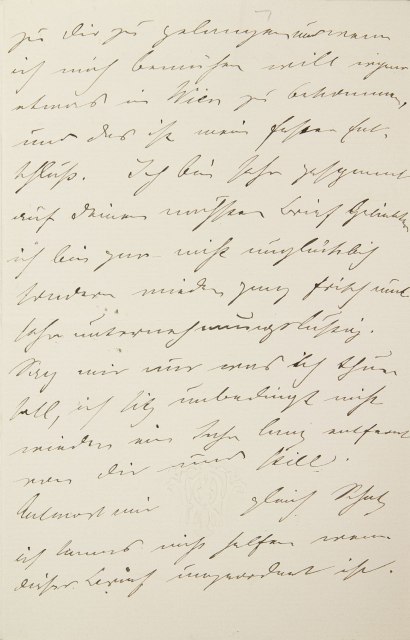 zu dir zu gelangen und wenn
ich mich bemühen will irgend
etwas in Wien zu bekommen,
und das ist mein fester Ent-
schluß. Ich bin sehr gespannt
auf deinen nächsten Brief Geliebter
ich bin gar nicht unglücklich
sondern wieder ganz frisch und
sehr unternehmungslustig.
Sag mir nur was ich thun
soll, ich sitz unbedingt nicht
wieder ein Jahr lang entfernt
von dir und still.
Antworte mir gleich Schatz
ich kanns nicht helfen wenn
dieser Brief ungeordnet ist.